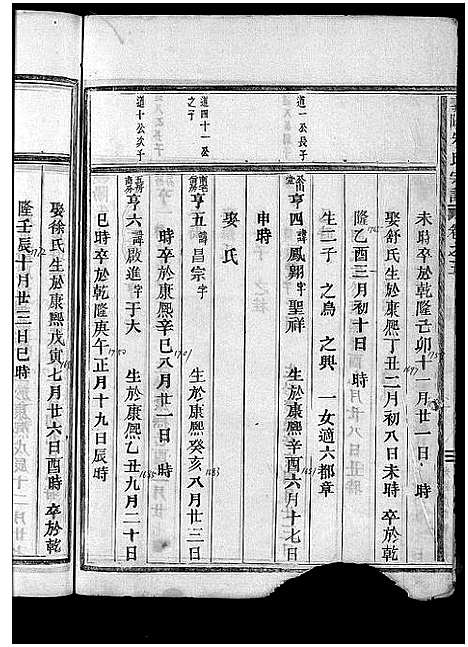 未時卒於乾隆己卯十一月廿一日 時
娶舒氏生於康熙丁丑二月初八日未時 卒於乾
1697
隆乙酉三月初十日 時
生二子 之為 之興 一女適六都章
道一公長子
亨四 諱鳳翱 字聖祥 生於康熙辛酉六月十七日
申時
娶 氏
道四十一公之子
亨五 諱昌宗 字 生於康熙癸亥八月廿三日
1683
時卒於康熙辛巳八月廿一日 時
1701
道十公次子
亨六 諱啟進 字于大 生於康熙乙丑九月二十日
1685
巳時卒於乾隆庚午正月十九日辰時
1750
娶徐氏生於康熙戊寅七月廿六日酉時 卒於乾
隆壬辰十月廿三日巳時
1772